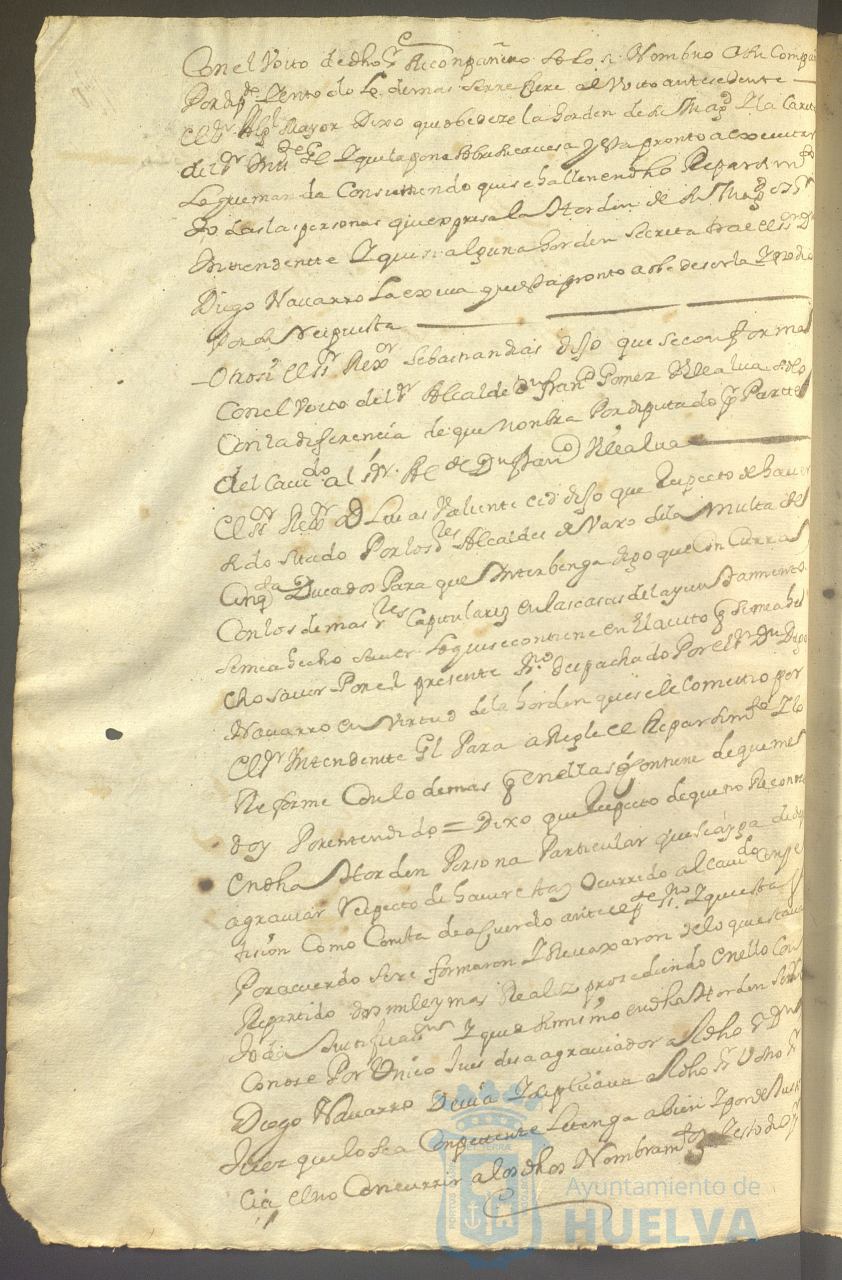 Con el Voto de dho Sr Acompañero solo q Nombro a su compa
Por dip.do Y en todo lo demas se rrefiere al Voto antesedente
El Sr Alg.l Mayor Dixo que obedeze la horden de su Mag.d Y la Carta
del Sr Ynt.te Gl Y que la pone sobre su cavesa y esta pronto a executar
lo que manda Consintiendo que se hallen en dho Repartim.to
todas las personas que expresa la Horden de su Mag.d
Yntendentte Y que si alguna horden secreta trae el Sr Dn
Diego Navarro la exiva que esta pronto a obedeserla Y esto dio
Por su Respuesta
Otrosi el Sr Rexor Sebastian dias dijo que se conforma
Con el Voto del Sr Alcalde Dn Fran.co Gomez Villalva solo
Con la diferencia de que Nonbra Por diputado p.r Partte
del Cavi.do al Sr Al.de Dn Fran.co Villalva
El Sr Rexor D Lucas Valiente Cid dijo que Respecto de haver
sido sitado Por los S.res Alcaldes devaxo de la Multa de
Cinq.ta Ducados Para que Ynterbenga digo que Concurra
Con los demas S.res Capitulares en las casas de layuntamiento
se me a hecho saver lo que se contiene en el auto q se me a he
cho saver Por el presente s.no despachado Por el Sr Dn Diego
Navarro en Virtud de la horden que se le cometio por
El Sr Yntendente Gl Para aRegle el Repartim.to Y lo
Reforme Con lo demas q en ellas se contiene de que me
doy Por entendido = Dixo que Respecto de que no Reconose
en dha Horden Persona Particular que se aya de des
agraviar Respecto de haver estas Ocurrido al Cavi.do en pe
tision Como Consta de aCuerdo ante el pte s.no Y que esta
Por acuerdo se reformaron Y Revaxaron de lo que estava
Repartido dos mil y mas Reales prosediendo en ello Con
toda Justificas.on Y que asimismo en dha Horden
Conose Por Unico Jues desagraviador a el dho Sr Dn
Diego Navarro Devia Y suplicava a el dho Sr V dho Sr
Juez que lo sea Conpetente lo tenga a bien Y por de Justi
cia el no Concurrir a los dhos Nombram.tos Y esto dio
Ayuntamiento de
HUELVA